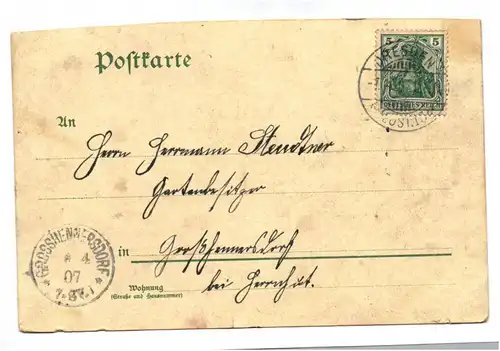 Postkarte
5 5
DRESDEN
An
Herrn Herrmann Steudtner
Gartenbesitzer
in Großhennersdorf
bei Herrnhut.
GROSSHENNERSDORF
4
07
7-8V.
Wohnung
(Straße und Hausnummer)